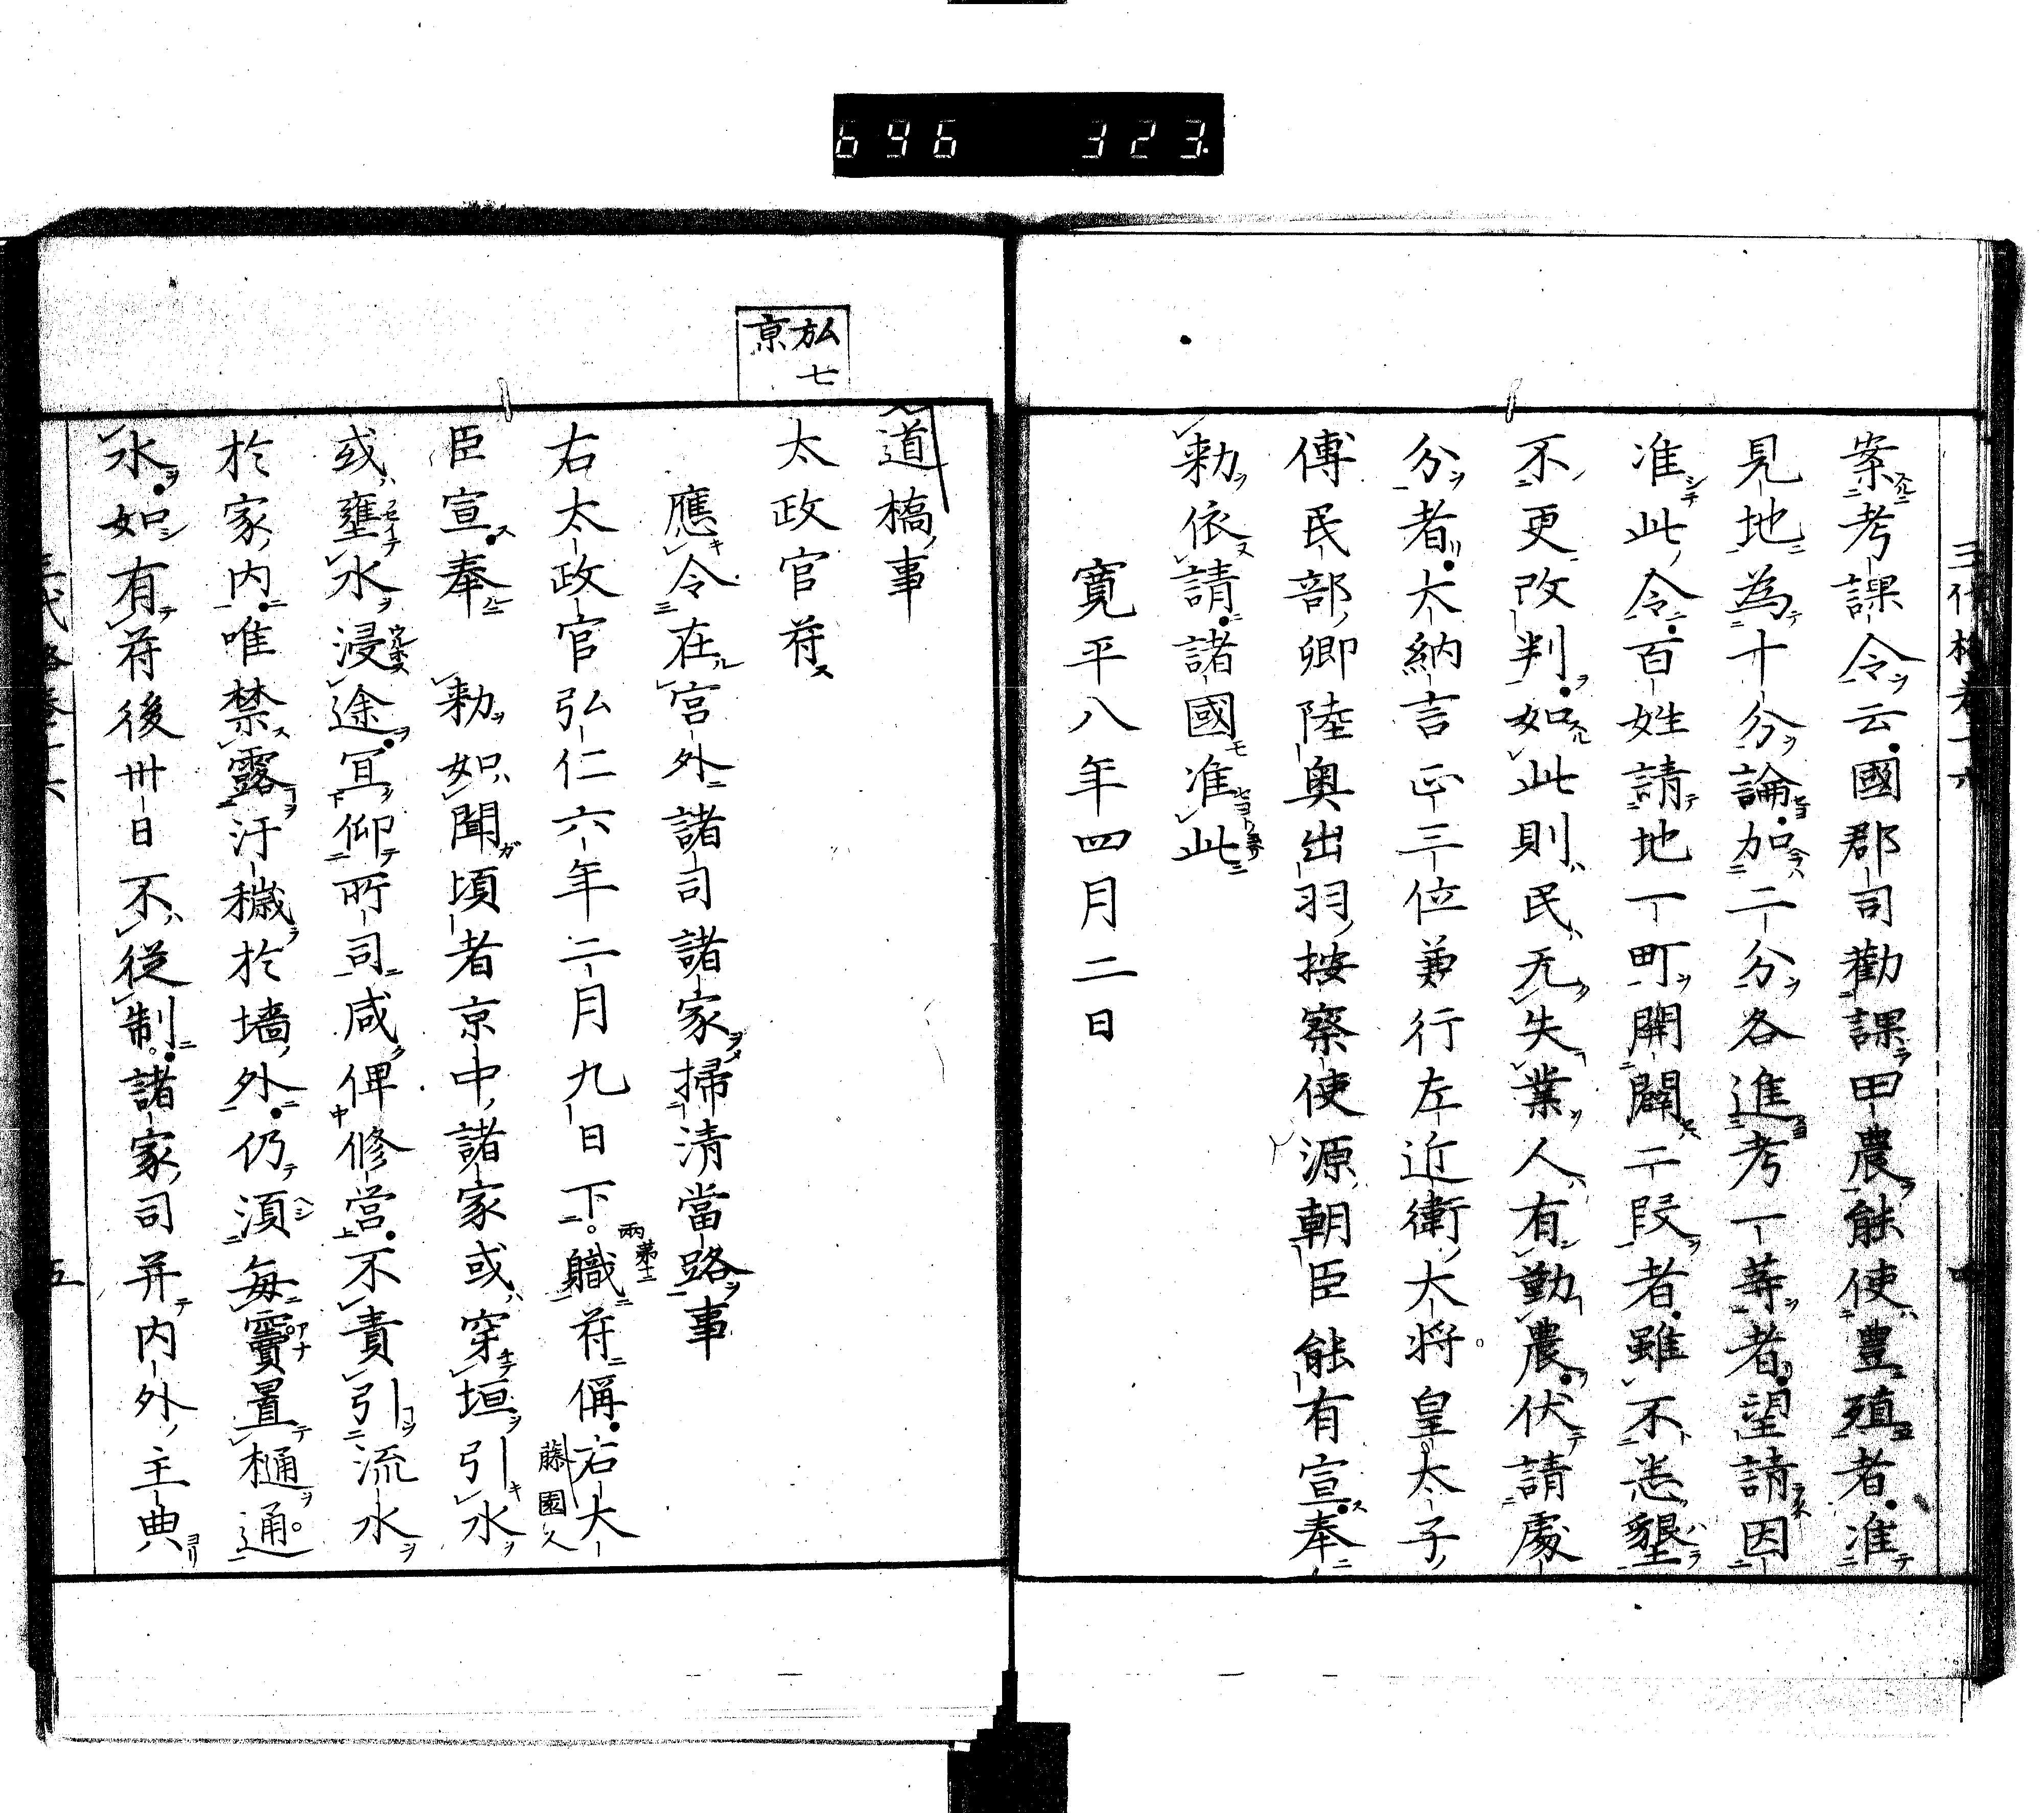 696 323.
三代格卷十六
案考課令云國郡司勸課田農能使豊殖者准
見地為十分論加二分各進考一等者望請因
准此令百姓請地一町開闢二段者雖不悉墾
不更改判如此則民无失業人有勤農伏請處
分者大納言正三位兼行左近衛大将皇太子
傅民部卿陸奥出羽按察使源朝臣能有宣奉
勅依請諸國准此
寛平八年四月二日
道橋事
弘七
京
太政官符
應令在宮外諸司諸家掃清當路事
右太政官弘仁六年二月九日下職符偁右大
兩第十二
藤園人
臣宣奉 勅如聞頃者京中諸家或穿垣引水
或壅水浸途宜仰所司咸俾修営不責引流水
於家内唯禁露汙穢於墻外仍須毎竇置樋通
水如有符後卅日不従制諸家司并内外主典
五